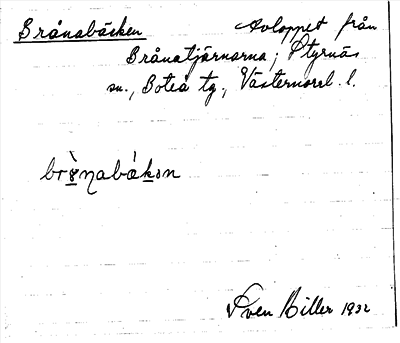 Brånabäcken Avloppet från
Brånatjärnarna, Styrnäs
sn., Boteå tg., Västernorrl. l.
Sven Hiller 1932